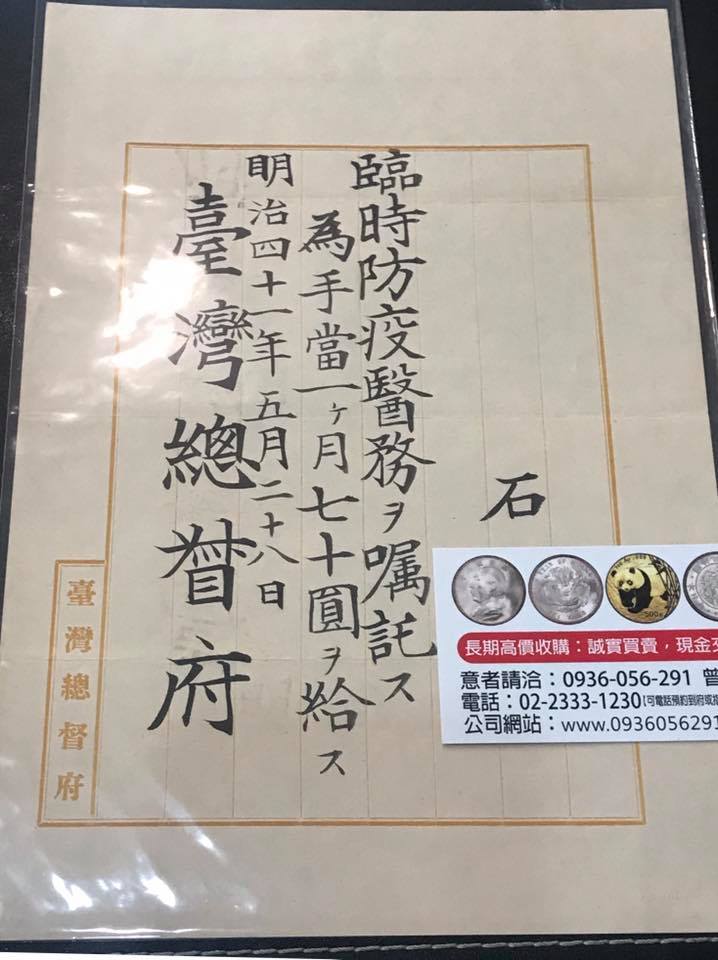 石
臨時防疫醫務ヲ囑託ス
為手當一ヶ月七十圓ヲ給ス
明治四十一年五月二十八日
臺灣總督府
臺灣總督府
長期高價收購：誠實買賣，現金
意者請洽：0936-056-291 曾
電話：02-2333-1230【可電話預約到府或
公司網站：www.0936056291